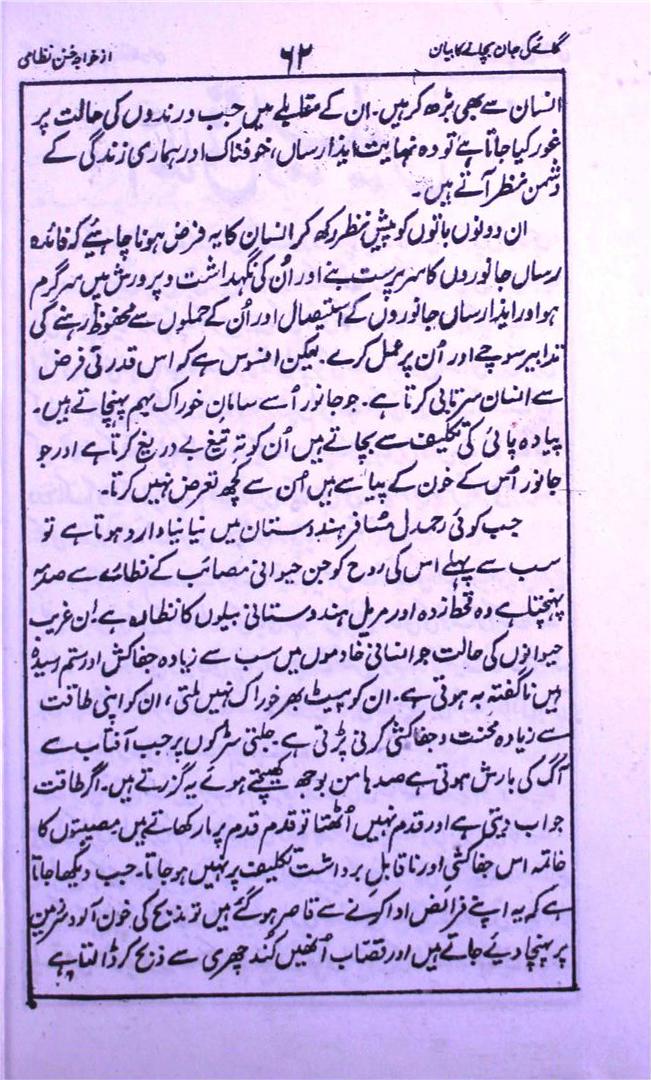 گائے کی جان بچانے کا بیان ۶۲ از خواجہ حسن نظامی
انسان سے بھی بڑھ کر ہیں۔ ان کے مقابلے میں جب درندوں کی حالت پر
غور کیا جاتا ہے تو وہ نہایت ایذا رساں، خوفناک اور ہماری زندگی کے
دشمن نظر آتے ہیں۔
ان دونوں باتوں کو پیش نظر رکھ کر انسان کا یہ فرض ہونا چاہئیے کہ فائدہ
رساں جانوروں کا سرپرست بنے اور اُن کی نگہداشت و پرورش میں سرگرم
ہو اور ایذا رساں جانوروں کے استیصال اور اُن کے حملوں سے محفوظ رہنے کی
تدابیر سوچے اور اُن پر عمل کرے۔ لیکن افسوس ہے کہ اس قدرتی فرض
سے انسان سرتابی کرتا ہے۔ جو جانور اُسے سامانِ خوراک بہم پہنچاتے ہیں۔
پیادہ پائی کی تکلیف سے بچاتے ہیں اُن کو تہِ تیغ بے دریغ کرتا ہے اور جو
جانور اُس کے خون کے پیاسے ہیں اُن سے کچھ تعرض نہیں کرتا۔
جب کوئی رحمدل مسافر ہندوستان میں نیا نیا وارد ہوتا ہے تو
سب سے پہلے اس کی روح کو جن حیوانی مصائب کے نظارے سے صدمہ
پہنچتا ہے وہ قحط زدہ اور مریل ہندوستانی بیلوں کا نظارہ ہے۔ اِن غریب
حیوانوں کی حالت جو انسانی خادموں میں سب سے زیادہ جفاکش اور ستم رسیدہ
ہیں ناگفتہ بہ ہوتی ہے۔ ان کو پیٹ بھر خوراک نہیں ملتی، ان کو اپنی طاقت
سے زیادہ محنت و جفاکشی کرنی پڑتی ہے۔ جلتی سڑکوں پر جب آفتاب سے
آگ کی بارش ہوتی ہے صدہا من بوجھ کھینچتے ہوئے یہ گزرتے ہیں۔ اگر طاقت
جواب دیتی ہے اور قدم نہیں اُٹھتا تو قدم قدم پر مار کھاتے ہیں۔ مصیبتوں کا
خاتمہ اس جفاکشی اور ناقابلِ برداشت تکلیف پر نہیں ہوجاتا۔ جب دیکھا جاتا
ہے کہ یہ اپنے فرائض ادا کرنے سے قاصر ہوگئے ہیں تو مذبح کی خون آلود سرزمین
پر پہنچا دیئے جاتے ہیں اور قصاب اُنھیں کُند چھری سے ذبح کر ڈالتا ہے